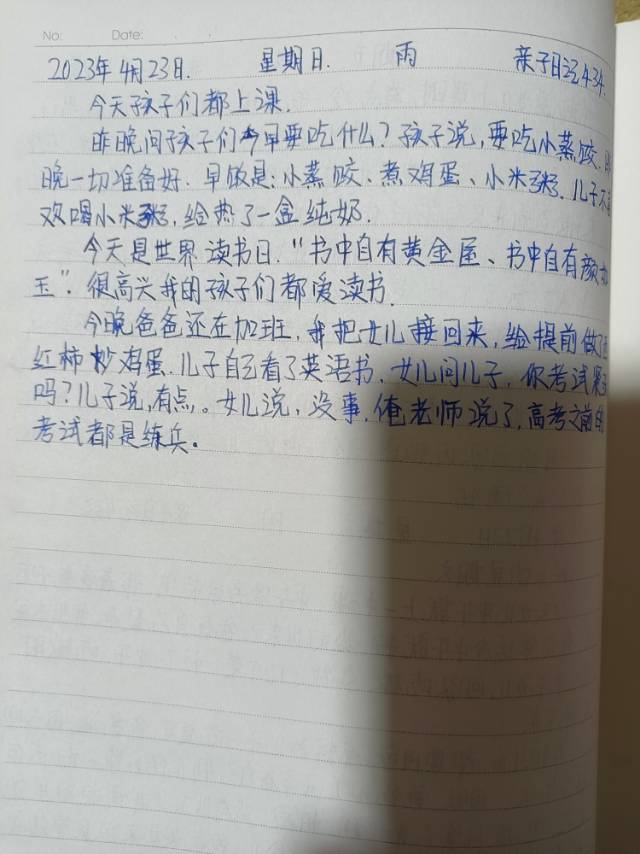 No: Date:
2023年4月23日. 星期日. 雨 亲子日记434.
今天孩子们都上课.
昨晚问孩子们今早要吃什么?孩子说,要吃小蒸饺.昨
晚一切准备好.早饭是:小蒸饺、煮鸡蛋、小米粥.儿子不喜
欢喝小米粥,给热了一盒纯奶.
今天是世界读书日."书中自有黄金屋、书中自有颜如
玉".很高兴我的孩子们都爱读书.
今晚爸爸还在加班,我把女儿接回来,给提前做了
红柿炒鸡蛋.儿子自己看了英语书.女儿问儿子,你考试紧
吗?儿子说,有点。女儿说,没事,俺老师说了,高考之前的
考试都是练兵。